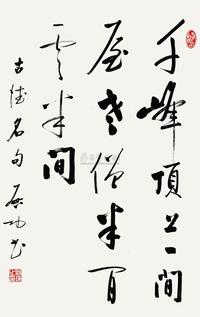 千峰顶上一间
屋老僧半间
云半间
古德名句 启功书